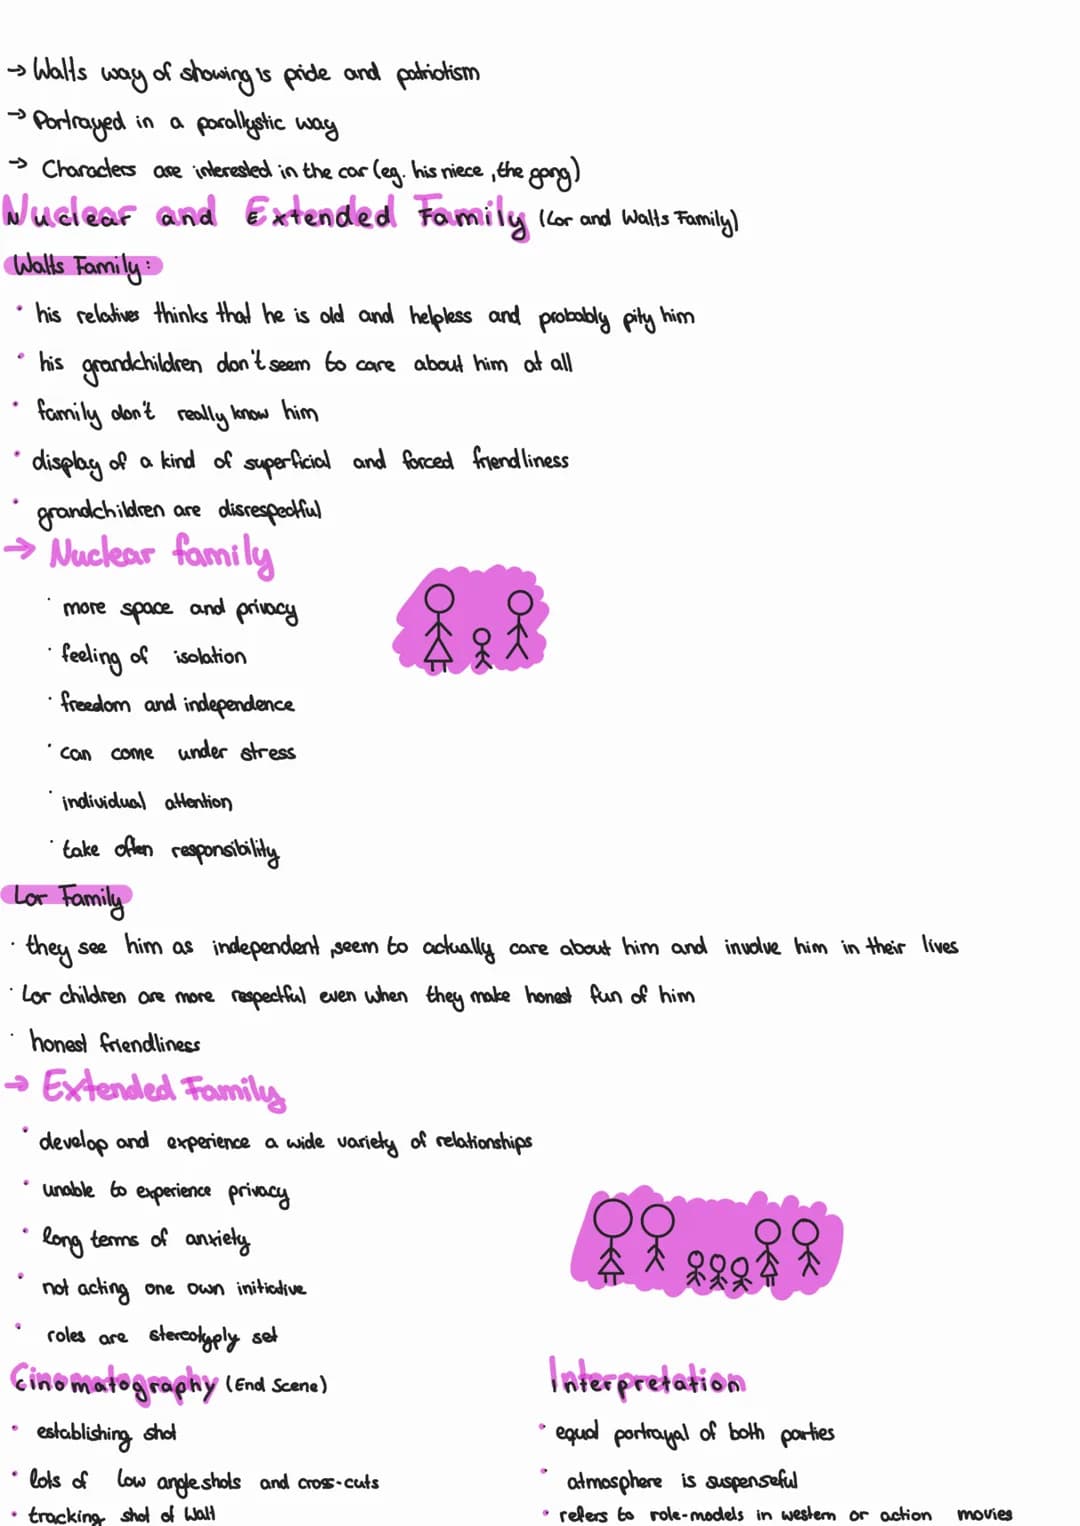 → Walts way of showing is pride and patriotism
→ Portrayed in a parallystic way
→ Characters are interested in the car (eg. his niece, the gang)
Nuclear and Extended Family (Lor and Walts Family)
Walts Family:
• his relatives thinks that he is old and helpless and probably pity him
• his grandchildren don't seem to care about him at all
• family don't really know him
• display of a kind of superficial and forced friendliness
• grandchildren are disrespectful
→ Nuclear family
• more space and privacy
• feeling of isolation
• freedom and independence
• can come under stress
• individual attention
• take often responsibility
Lor Family
• they see him as independent, seem to actually care about him and involve him in their lives
• Lor children are more respectful even when they make honest fun of him
• honest friendliness
→ Extended Family
• develop and experience a wide variety of relationships
• unable to experience privacy
• long terms of anxiety
• not acting one own initiative
• roles are stereotyply set
Cinematography (End Scene)
• establishing shot
• lots of low angleshots and cross-cuts
• tracking shot of Walt
Interpretation
• equal portrayal of both parties
• atmosphere is suspenseful
• refers to role-models in western or action movies